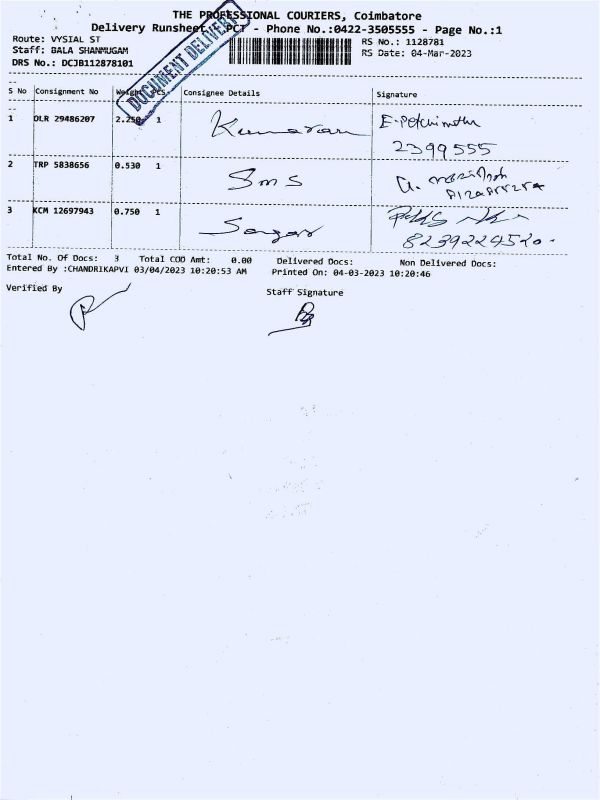 THE PROFESSIONAL COURIERS, Coimbatore
Delivery Runsheet PCT - Phone No.:0422-3505555 - Page No.:1
Route: VYSIAL ST
Staff: BALA SHANMUGAM
DRS No.: DCJB112878101
RS No.: 1128781
RS Date: 04-Mar-2023
DOCUMENT DELIVERY
S No Consignment No Weight PCS Consignee Details Signature
1 DLR 29486207 2.250 1 Kumaran
2399555
2 TRP 5838656 0.530 1 SMS
3 KCM 12697943 0.750 1
8239224520
Total No. Of Docs: 3 Total COD Amt: 0.00 Delivered Docs: Non Delivered Docs:
Entered By :CHANDRIKAPVI 03/04/2023 10:20:53 AM Printed On: 04-03-2023 10:20:46
Verified By
Staff Signature